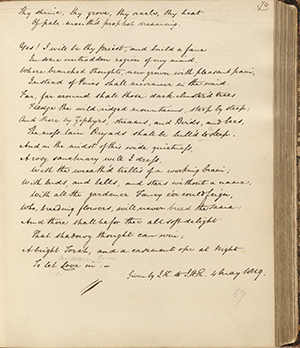 74
Thy shrine, thy grove, thy oracle, thy heat
Of pale-mouth'd prophet dreaming.
Yes! I will be thy priest, and build a fane
In some untrodden region of my mind,
Where branched thoughts, new grown with pleasant pain,
Instead of Pines shall murmur in the wind.
Far, far around shall those dark-cluster'd trees
Fledge the wild-ridged mountains, steep by steep;
And there by Zephyrs, streams, and birds, and bees,
The moss-lain Dryads shall be lull'd to sleep.
And in the midst of this wide quietness,
A rosy sanctuary will I dress,
With the wreath'd trellis of a working brain;
With buds, and bells, and stars without a name,
With all the gardener Fancy e'er could feign,
Who, breeding flowers, will never breed the same
And there shall be for thee all soft delight
That shadowy thought can win;
A bright Torch, and a casement ope at Night
To let Love in.—
Given by J.K. to J.H.R. 4 May 1819.